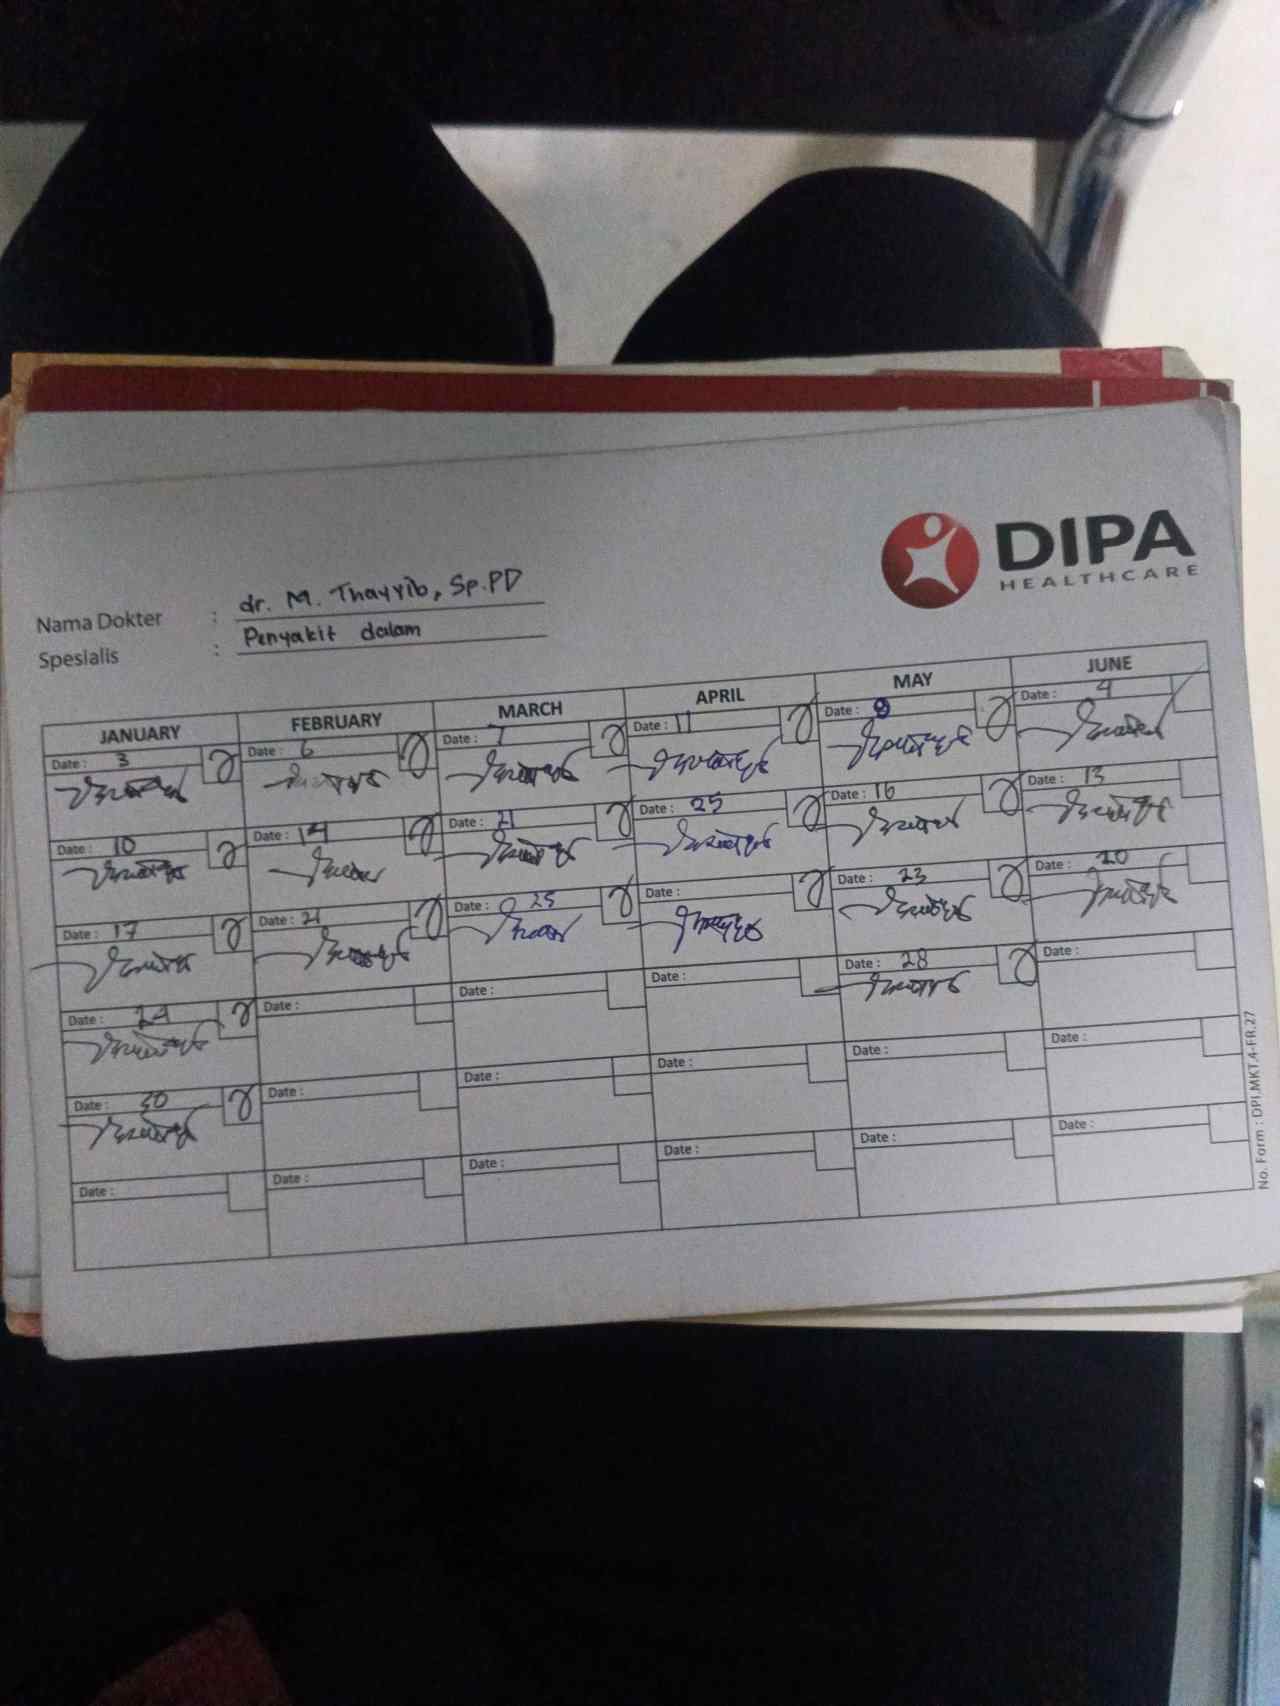 DIPA
HEALTHCARE
Nama Dokter : dr. M. Thayyib, Sp.PD
Spesialis : Penyakit dalam
JANUARY FEBRUARY MARCH APRIL MAY JUNE
Date : 3 Date : 6 Date : 7 Date : 11 Date : 9 Date : 4
Date : 10 Date : 14 Date : 21 Date : 25 Date : 16 Date : 13
Date : 17 Date : 21 Date : 25 Date : Date : 23 Date : 20
Date : 24 Date : Date : Date : Date : 28 Date :
Date : 30 Date : Date : Date : Date : Date :
Date : Date : Date : Date : Date : Date :
No. Form : DPI.MKT.4-FR.27